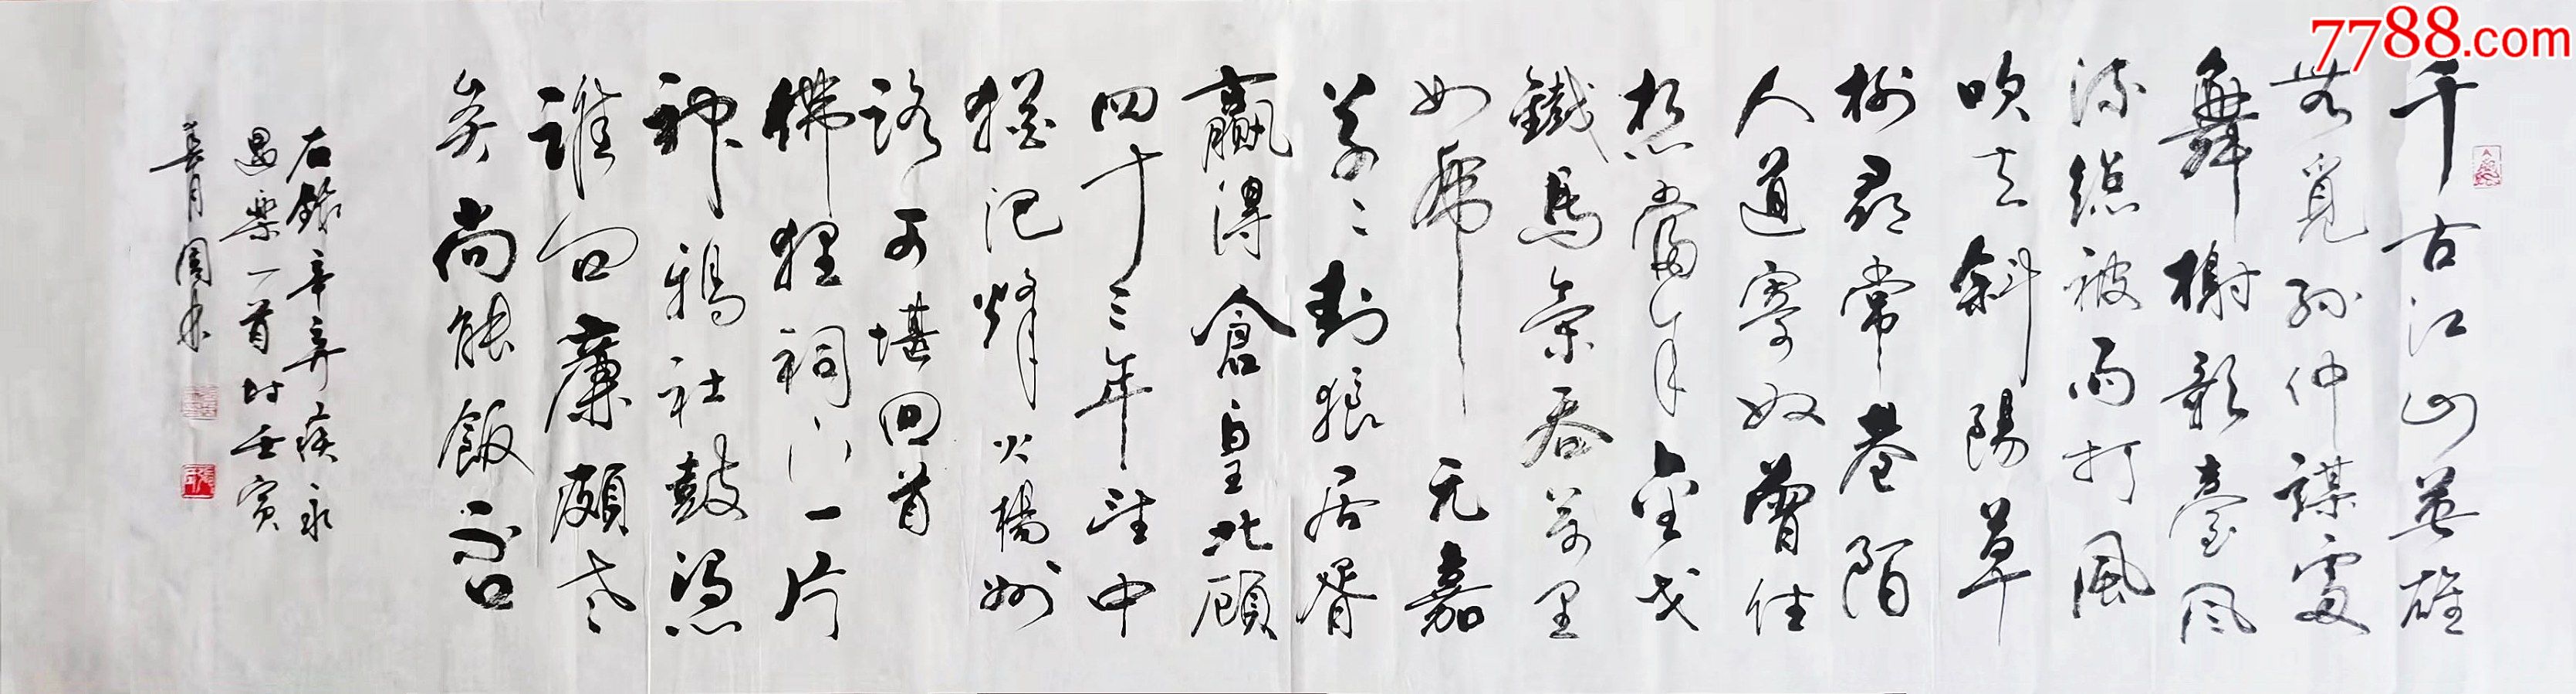 7788.com
千古江山英雄
無覓孫仲謀處
舞榭歌臺風
流總被雨打風
吹去斜陽草
樹尋常巷陌
人道寄奴曾住
想當年金戈
鐵馬氣吞萬里
如虎元嘉
草〻封狼居胥
贏得倉皇北顧
四十三年望中
猶記烽火楊州
路可堪回首
佛狸祠下一片
神鴉社鼓憑
誰問廉頗老
矣尚能飯否
右錄辛弃疾永
遇樂一首时壬寅
春月周